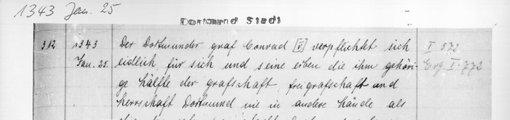 1343 Jan. 25
Dortmund Stadt
312 1343 Der Dortmunder graf Conrad [V] verpflichtet sich I 572
Jan. 25. eidlich für sich und seine erben die ihm gehöri- Erg I. 772
ge hälfte der grafschaft freigrafschaft und
herrschaft Dortmund nie in andere hände als